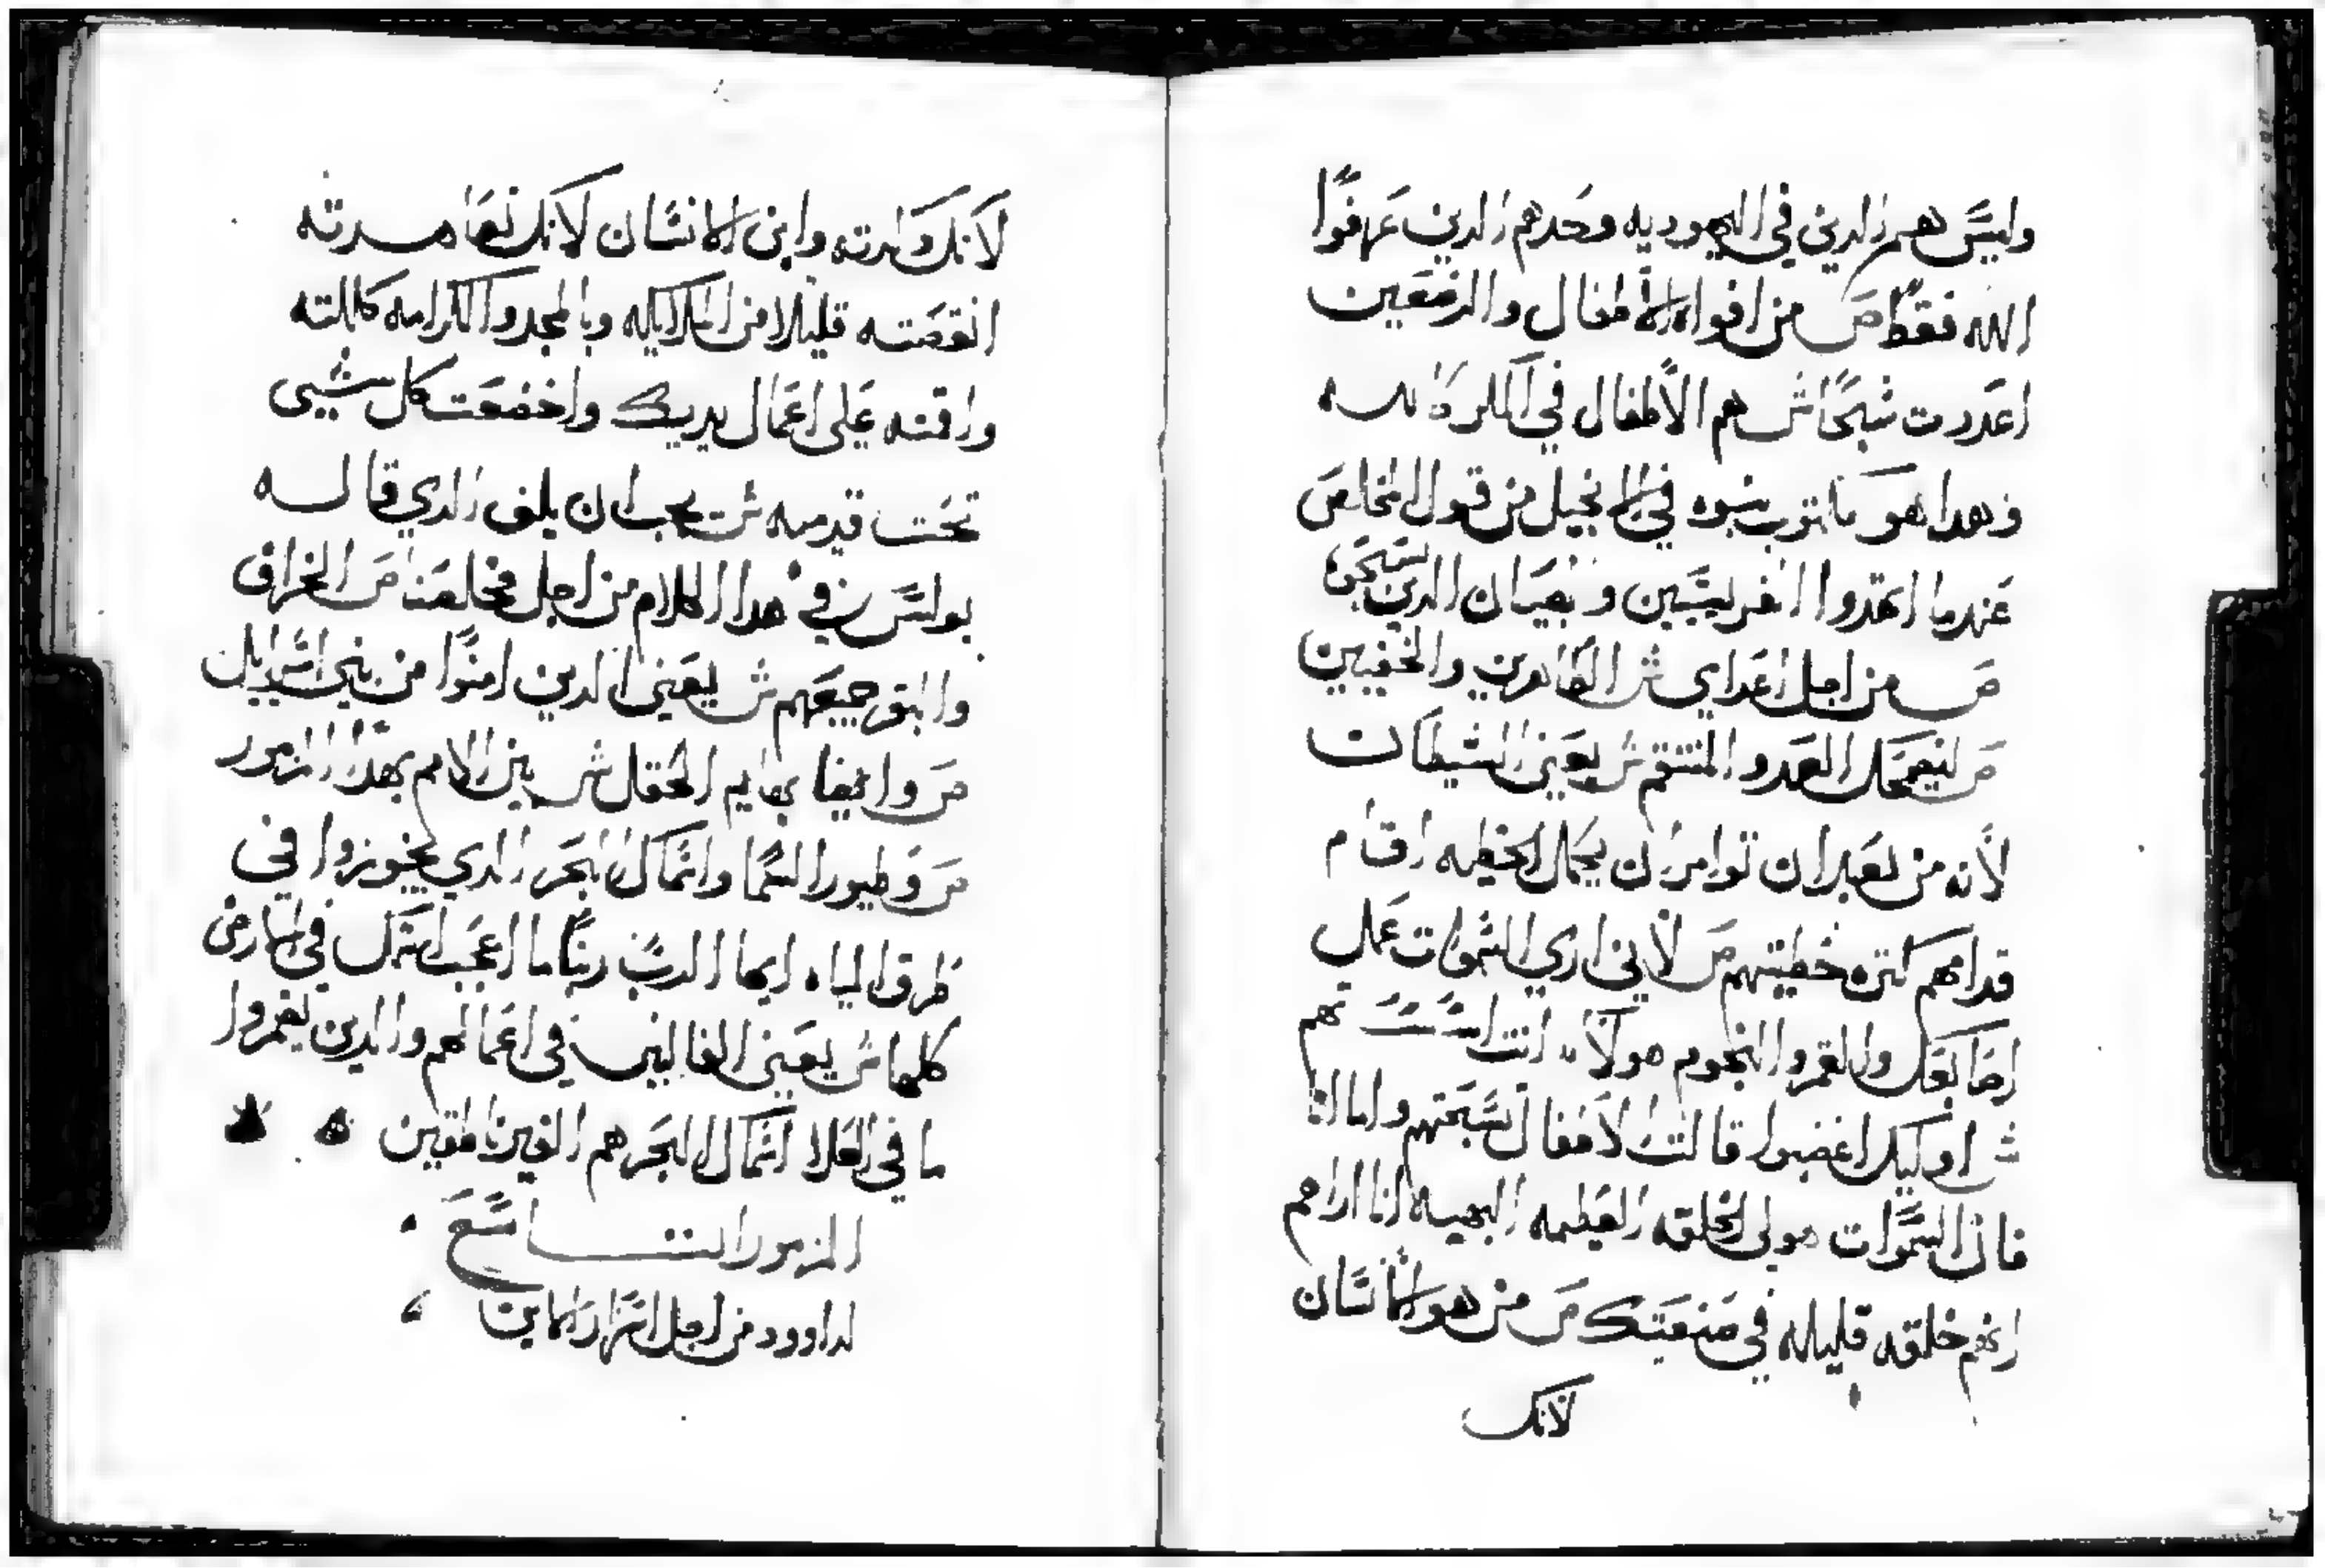 وليسَ هم الدين في اليهوديه وحَدهم الدين عَرفوا
الله فقط ص من افواه الأطفال والرضعَين
اعَددت سَبحًا ش هم الأطفال في
وهدا هو مكتوب في الانجيل من قول المخلص
عَندما الفريسَيين وان الدين
ص من اجل اعَداي ش الظاهرين والخفيين
ص العَدو المنتقم ش يعَني الشيطان
لأنه من بعَد ان توامر ان الخطيه اقام
قدامهم كتره خطيتهم ص لأني اري السَموات عَمل
اصابعَك والقمر والنجوم هولاء انت اسَسَتهم
ش اوليك اغضبوا قالت الأطفال سَبحَتهم واما انا
فان السَموات هولي الخلقه العَظيمه البهيه انا اراهم
انهم خلقه قليله في صنعَتك ص من هو الانسَان
لأنك
لأنك دكرته وابن الانسَان لأنك تعَاهدته
انقصَته قليلا من الملايكه وبالمجد والكرامه كللته
واقمته عَلى اعَمال يديك واخضعَت كل شيي
تحَت قدميه ش يجب ان الدي قال له
بولسَ في هدا الكلام من اجل مخلصَنا ص الخراف
والبقر جميعَهم ش يعَني الدين امنوا من بني اسَراييل
ص وايضا بهايم الحَقل ش من الامم بهدا المزمور
ص وطيور السَما واسَماك البحَر الدي يجوزوا في
طرق المياه ايها الرب ربنا ما اعَجب اسَمك في الأرض
كلها ش يعَني في اعَمالهم والدين
ما في العَلا اسَماك البحَر هم الغير ناطقين
المزمور التاسَعَ
لداوود من اجل